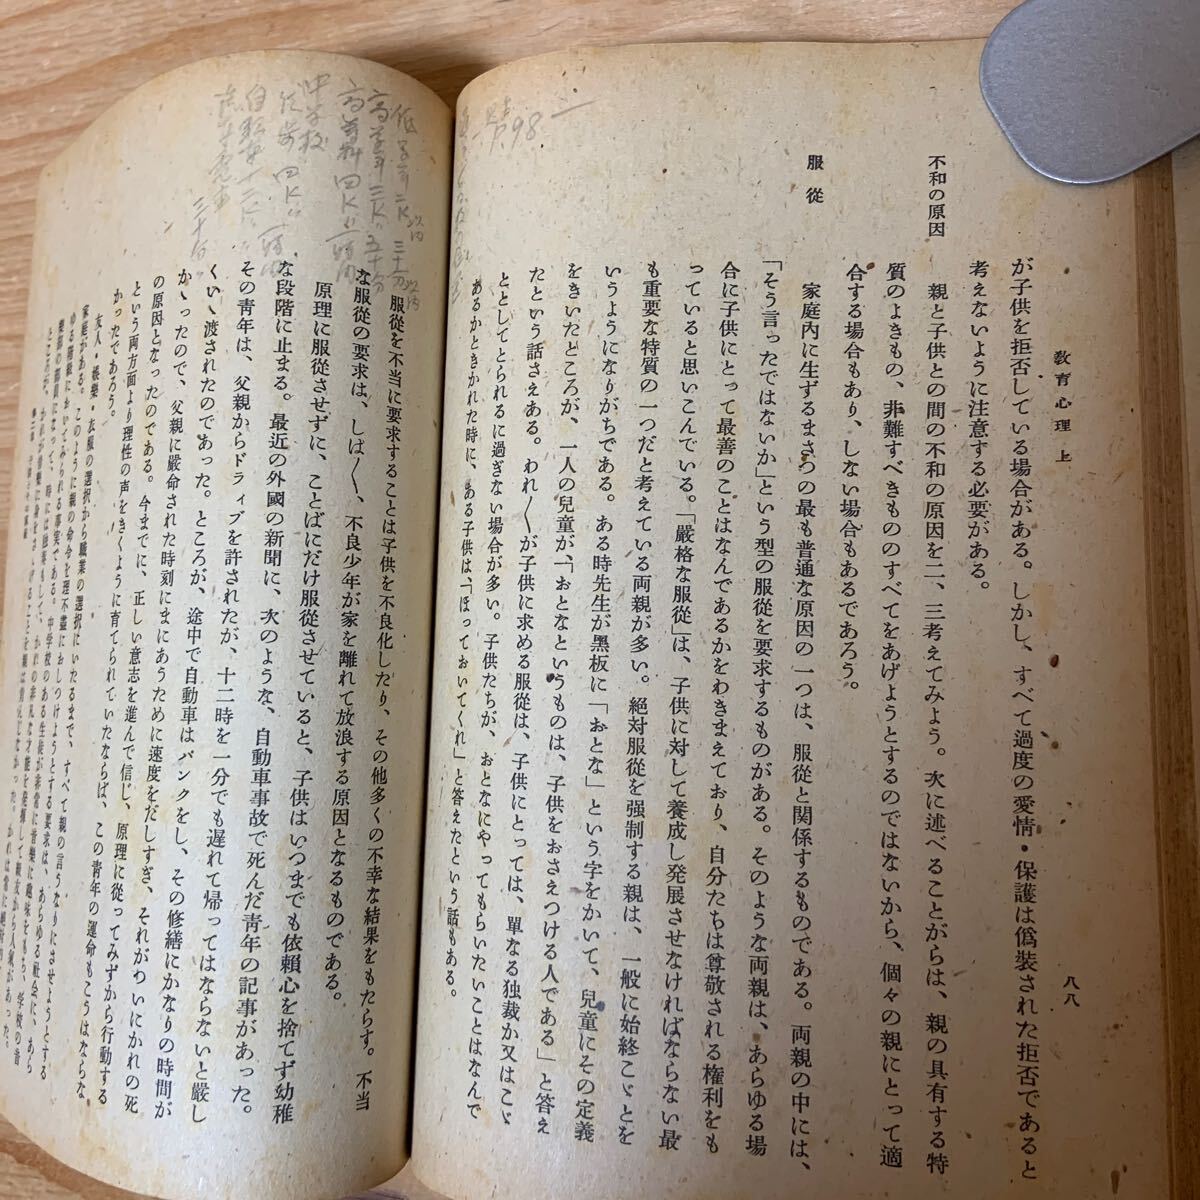 教育心理 上
八八
が子供を拒否している場合がある。しかし、すべて過度の愛情・保護は僞装された拒否であると
考えないように注意する必要がある。
不和の原因
親と子供との間の不和の原因を二、三考えてみよう。次に述べることがらは、親の具有する特
質のよきもの、非難すべきもののすべてをあげようとするのではないから、個々の親にとって適
合する場合もあり、しない場合もあるであろう。
服從
家庭内に生ずるまさつの最も普通な原因の一つは、服從と関係するものである。両親の中には、
「そう言ったではないか」という型の服從を要求するものがある。そのような両親は、あらゆる場
合に子供にとって最善のことはなんであるかをわきまえており、自分たちは尊敬される権利をも
っていると思いこんでいる。「嚴格な服從」は、子供に対して養成し発展させなければならない最
も重要な特質の一つだと考えている両親が多い。絶対服從を强制する親は、一般に始終こゞとを
いうようになりがちである。ある時先生が黑板に「おとな」という字をかいて、兒童にその定義
をきいたところが、一人の兒童が、「おとなというものは、子供をおさえつける人である」と答え
たという話さえある。われ〱が子供に求める服從は、子供にとっては、單なる独裁か又はこゞ
ととしてとられるに過ぎない場合が多い。子供たちが、おとなにやってもらいたいことはなんで
あるかときかれた時に、ある子供は、「ほっておいてくれ」と答えたという話もある。
P.98
服從を不当に要求することは子供を不良化したり、その他多くの不幸な結果をもたらす。不当
な服從の要求は、しば〱、不良少年が家を離れて放浪する原因となるものである。
原理に服從させずに、ことばにだけ服從させていると、子供はいつまでも依賴心を捨てず幼稚
な段階に止まる。最近の外國の新聞に、次のような、自動車事故で死んだ靑年の記事があった。
その靑年は、父親からドライブを許されたが、十二時を一分でも遅れて帰ってはならないと嚴し
くいゝ渡されたのであった。ところが、途中で自動車はパンクをし、その修繕にかなりの時間が
かゝったので、父親に嚴命された時刻にまにあうために速度をだしすぎ、それがわいにかれの死
の原因となったのである。今までに、正しい意志を進んで信じ、原理に從ってみずから行動する
という両方面より理性の声をきくように育てられていたならば、この靑年の運命もこうはならな
かったであろう。
友人・娯樂・衣服の選択から職業の選択にいたるまで、すべて親の言うなりにさせようとする
家庭がある。このように親の命令を理不盡におしつけようとする要求は、あらゆる社会に、あら
ゆる階級においてみられる事実である。中学校のある生徒が非常に音樂に趣味をもち、学校の音